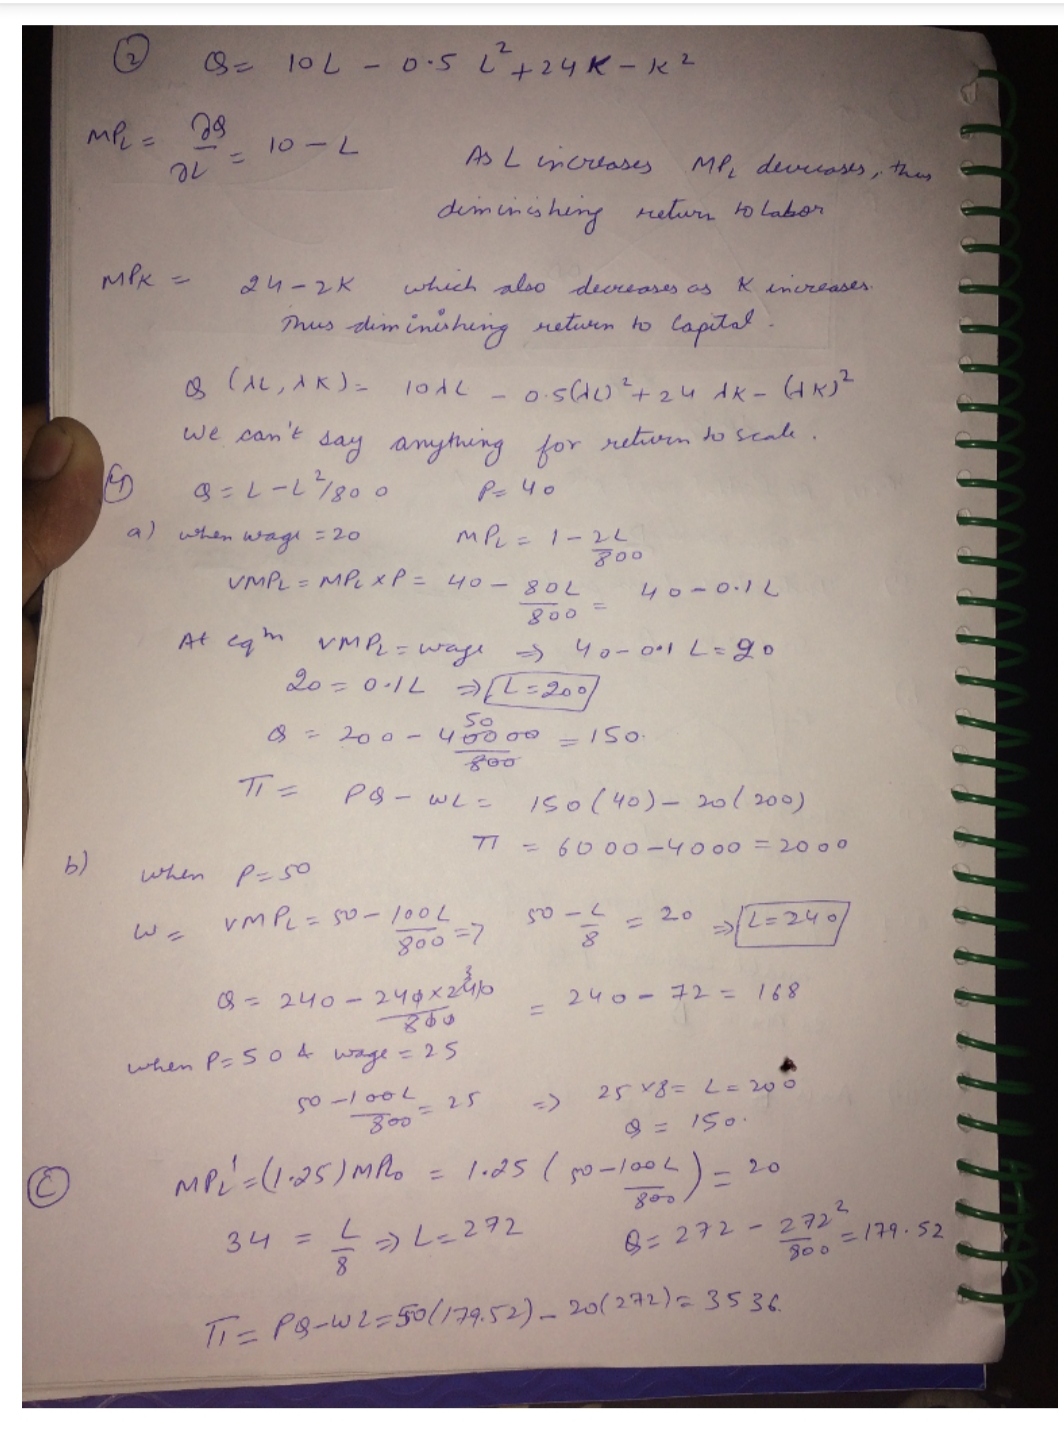 ② Q = 10L - 0.5 L² + 24K - K²
MPL = ∂Q/∂L = 10 - L
As L increases MPL decreases, thus
diminishing return to Labor
MPK = 24 - 2K which also decreases as K increases.
Thus diminishing return to Capital.
Q (λL, λK) = 10λL - 0.5(λL)² + 24 λK - (λK)²
We can't say anything for return to scale.
④ Q = L - L²/800 P = 40
a) when wage = 20 MPL = 1 - 2L/800
VMPL = MPL x P = 40 - 80L/800 = 40 - 0.1L
At eqm VMPL = wage ⇒ 40 - 0.1 L = 20
20 = 0.1L ⇒ L = 200
Q = 200 - 40000/800 = 150.
50
π = PQ - WL = 150(40) - 20(200)
π = 6000 - 4000 = 2000
b) when P = 50
W = VMPL = 50 - 100L/800 ⇒ 50 - L/8 = 20 ⇒ L = 240
Q = 240 - 240 x 240/800 = 240 - 72 = 168
3
when P = 50 & wage = 25
50 - 100L/800 = 25 ⇒ 25 x 8 = L = 200
Q = 150.
ⓒ MPL' = (1.25) MPL0 = 1.25 (50 - 100L/800) = 20
34 = L/8 ⇒ L = 272 Q = 272 - 272²/800 = 179.52
π = PQ - WL = 50(179.52) - 20(272) = 3536.